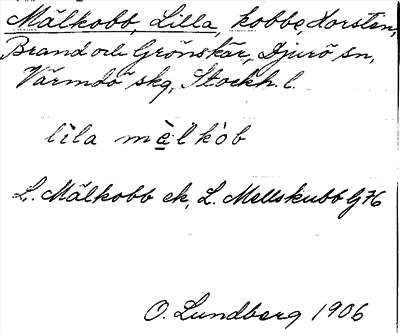 Mälkobb, Lilla, kobbe, Horsten,
Brand och Grönskär, Djurö sn,
Värmdö skg, Stockh. l.
lìla mɛ̀lkòb
L. Mälkobb ek, L. Mellskubb GK
O. Lundberg 1906